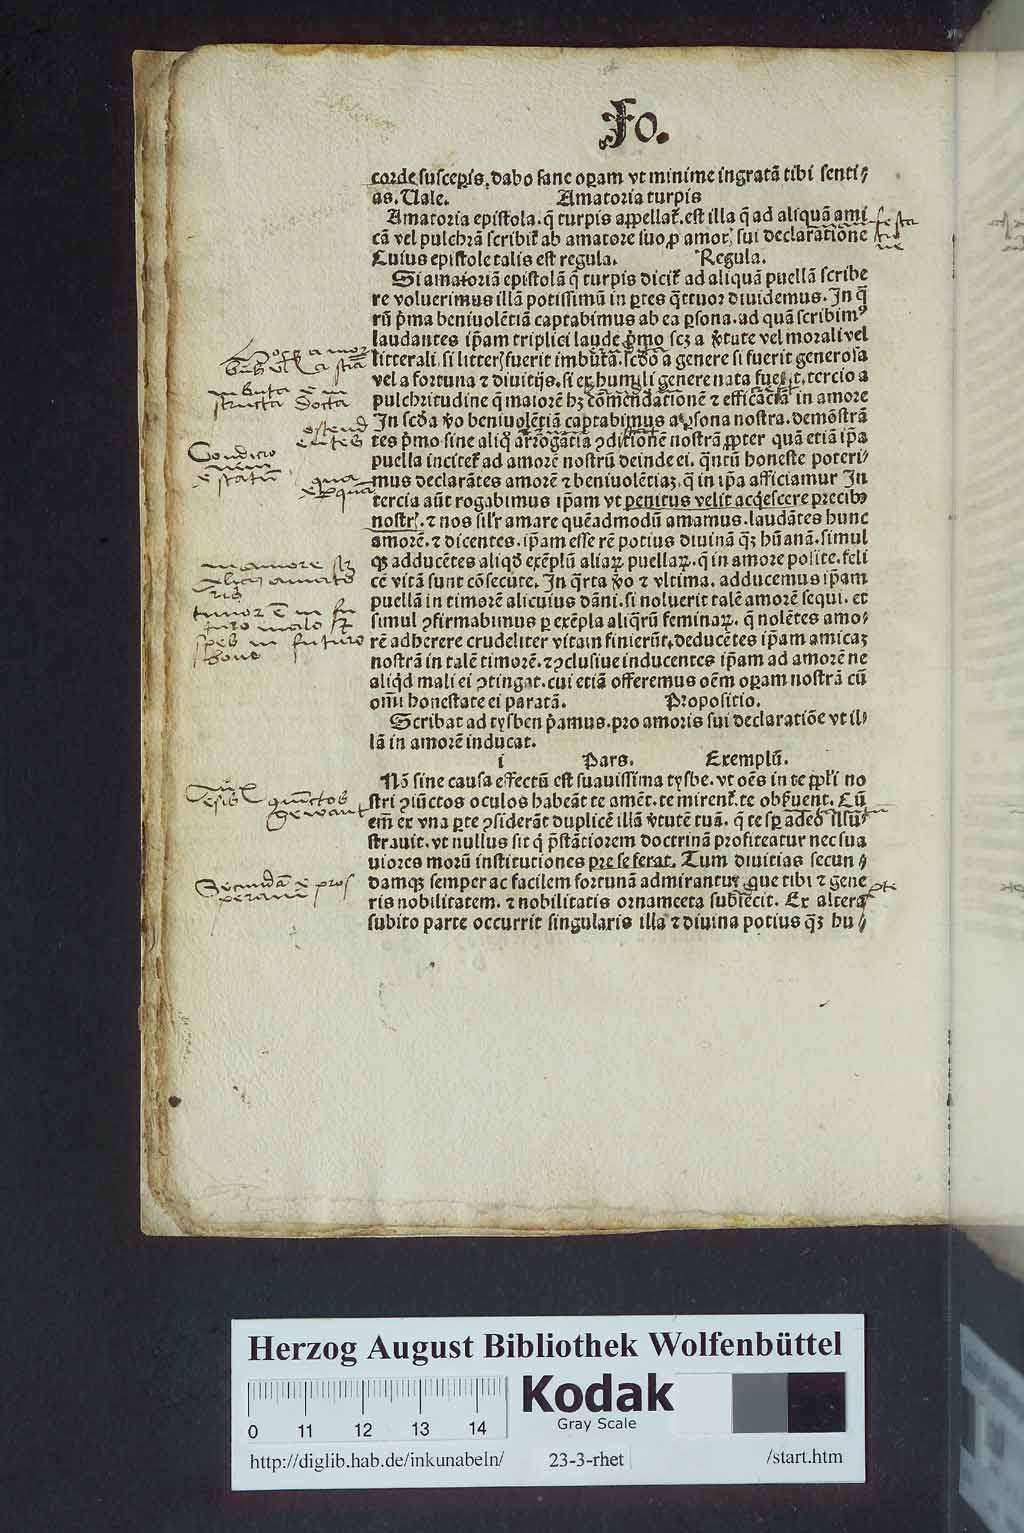 Fo.
corde susceper̃is. dabo sane oꝑam vt minime ingratã tibi senti⸗
as. Uale. Amatoria turpis
Amatoria epistola. q̃ turpis appellat᷑. est illa q̃ ad aliquã ami
cã vel pulchrã scribit᷑ ab amatore suo ꝓ amor̃ sui declaratione
Cuius epistole talis est regula. Regula.
Si amatoriã epistolã q̃ turpis dicit᷑ ad aliquã puellã scribe
re voluerimus illã potissimũ in ꝑtes q̃ttuor diuidemus. In q̃
rũ p̃ma beniuolẽtiã captabimus ab ea ꝑsona. ad quã scribimꝰ
laudantes ip̃am triplici laude p̃mo scꝫ a v̓tute vel morali vel
litterali. si litter̃ fuerit imbuta. scd̃o a genere si fuerit generosa
vel a fortuna ⁊ diuitijs. si ex humili genere nata fuerit, tercio a
pulchritudine q̃ maiorẽ hꝫ cõmendationẽ ⁊ efficaciã in amore
In scd̃a v̓o beniuolẽtiã captabimus a ꝑsona nostra. demõstrã
tes p̃mo sine aliq̃ arrogãtia ꝯditionẽ nostrã ꝓpter quã etiã ip̃a
puella incitet᷑ ad amorẽ nostrũ deinde ei. q̃ntũ honeste poteri⸗
mus declarãtes amorẽ ⁊ beniuolẽtiaꝫ. q̃ in ip̃a afficiamur In
tercia aũt rogabimus ip̃am vt penitus velit acq̃escere precibꝰ
nostr̃. ⁊ nos sil̃r amare quẽadmodũ amamus. laudãtes hunc
amorẽ. ⁊ dicentes. ip̃am esse rẽ potius diuinã q̃ꝫ hũanã. simul
qꝫ adducẽtes aliqd̃ exẽplũ aliaꝝ puellaꝝ. q̃ in amore posite. feli
cẽ vitã sunt cõsecute. In q̃rta v̓o ⁊ vltima. adducemus ip̃am
puellã in timorẽ alicuius dãni. si noluerit talẽ amorẽ sequi. et
simul ꝯfirmabimus ꝑ exẽpla aliq̃rũ feminaꝝ. q̃ nolẽtes amo⸗
rẽ adherere crudeliter vitam finierũt. deducẽtes ip̃am amicaꝫ
nostrã in talẽ timorẽ. ⁊ ꝯclusiue inducentes ip̃am ad amorẽ ne
aliqd̃ mali ei ꝯtingat. cui etiã offeremus oẽm oꝑam nostrã cũ
om̃i honestate ei paratã. Propositio.
Scribat ad tysben p̃amus. pro amoris sui declaratiõe vt il⸗
lã in amorẽ inducat.
i Pars. Exemplũ.
Nõ sine causa effectũ est suauissima tysbe. vt oẽs in te ꝓp̃li no
stri ꝯiũctos oculos habeãt te amẽt. te mirent᷑. te obſ̃uent. Cũ
em̃ ex vna ꝑte ꝯsiderãt duplicẽ illã v̓tutẽ tuã. q̃ te sꝑ adeo illu⸗
strauit. vt nullus sit q̃ p̃stãtiorem doctrinã profiteatur nec sua
uiores morũ institutiones pre se ferat. Tum diuitias secun⸗
damqꝫ semper ac facilem fortunã admirantur que tibi ⁊ gene
ris nobilitatem. ⁊ nobilitatis ornameeta subiecit. Ex altera
subito parte occurrit singularis illa ⁊ diuina potius q̃ꝫ hu⸗
ostend
entes
Condicio
nem
statũ
in amore
timor ẽ in fu
turo malo
spes in futuro
bono
Herzog August Bibliothek Wolfenbüttel
Kodak
Gray Scale
0 11 12 13 14
http://diglib.hab.de/inkunabeln/ 23-3-rhet /start.htm